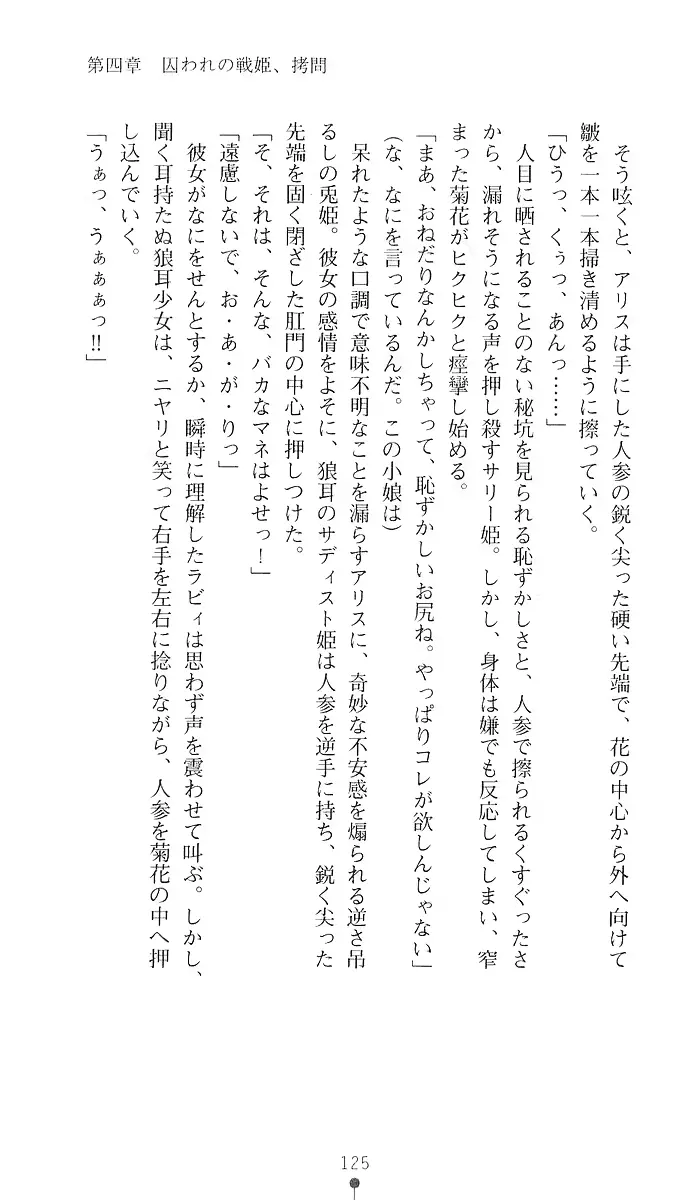 第四章　囚われの戦姫、拷問
そう呟くと、アリスは手にした人参の鋭く尖った硬い先端で、花の中心から外へ向けて
皺を一本一本掃き清めるように擦っていく。
「ひうっ、くぅっ、あんっ……」
人目に晒されることのない秘坑を見られる恥ずかしさと、人参で擦られるくすぐったさ
から、漏れそうになる声を押し殺すサリー姫。しかし、身体は嫌でも反応してしまい、窄
まった菊花がヒクヒクと痙攣し始める。
「まあ、おねだりなんかしちゃって、恥ずかしいお尻ね。やっぱりコレが欲しんじゃない」
(な、なにを言っているんだ。この小娘は)
呆れたような口調で意味不明なことを漏らすアリスに、奇妙な不安感を煽られる逆さ吊
るしの兎姫。彼女の感情をよそに、狼耳のサディスト姫は人参を逆手に持ち、鋭く尖った
先端を固く閉ざした肛門の中心に押しつけた。
「そ、それは、そんな、バカなマネはよせっ！」
「遠慮しないで、お・あ・が・りっ」
彼女がなにをせんとするか、瞬時に理解したラビィは思わず声を震わせて叫ぶ。しかし、
聞く耳持たぬ狼耳少女は、ニヤリと笑って右手を左右に捻りながら、人参を菊花の中へ押
し込んでいく。
「うぁっ、うぁぁぁっ!!」
125